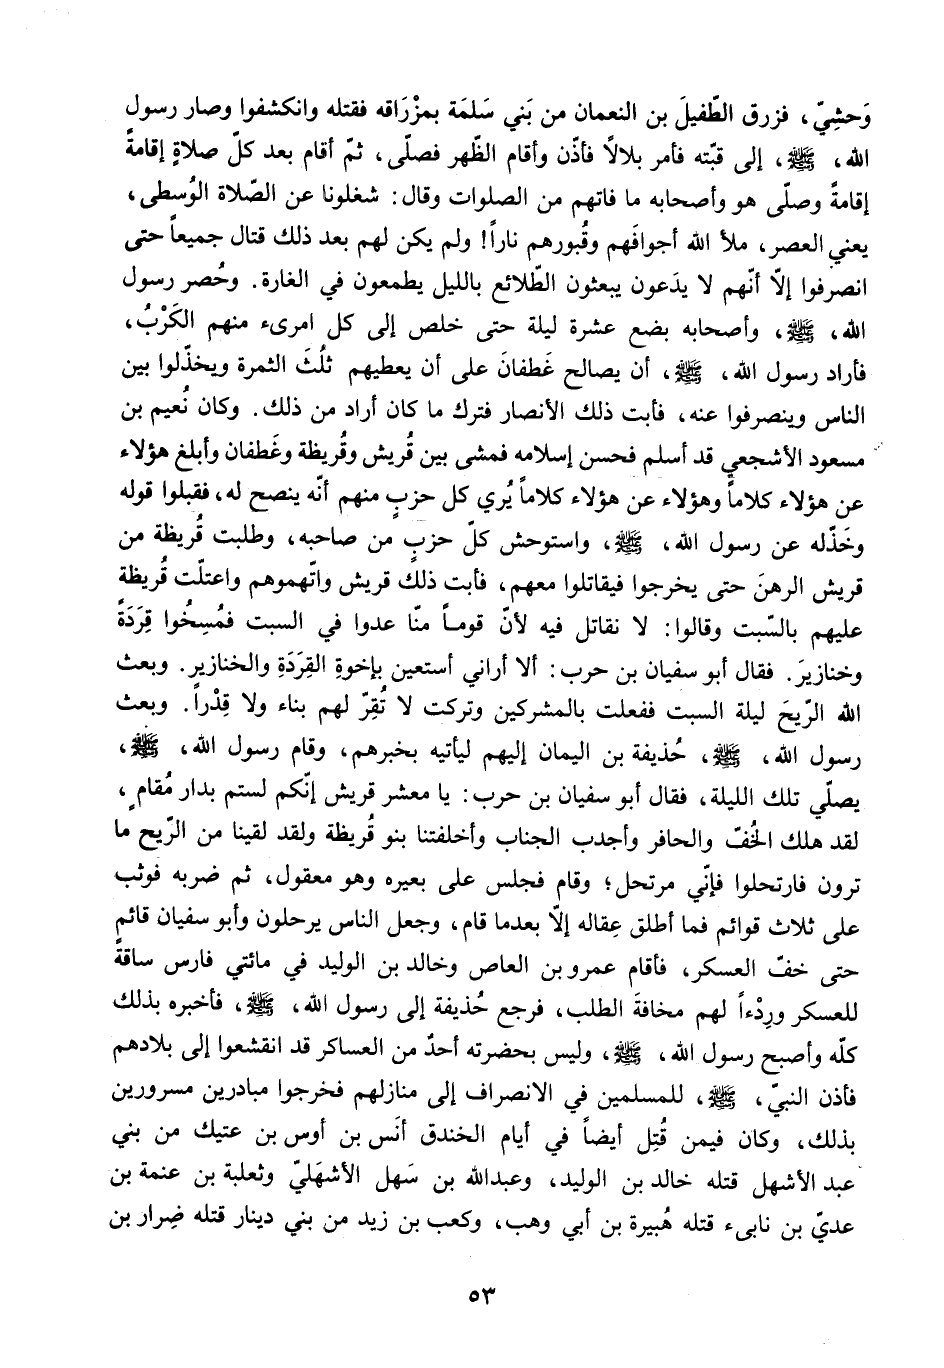 وَحشِيّ، فزرق الطّفيلَ بن النعمان من بَني سَلمَة بمزْرَاقه فقتله وانكشفوا وصار رسول
الله، ﷺ، إلى قبّته فأمر بلالاً فأذّن وأقام الظّهر فصلّى، ثمّ أقام بعد كلّ صلاةٍ إقامةً
إقامةً وصلّى هو وأصحابه ما فاتهم من الصلوات وقال: شغلونا عن الصّلاة الوُسطى،
يعني العصر، ملأ الله أجوافَهم وقُبورهم ناراً! ولم يكن لهم بعد ذلك قتال جميعاً حتى
انصرفوا إلاّ أنّهم لا يدَعون يبعثون الطّلائع بالليل يطمعون في الغارة. وحُصر رسول
الله، ﷺ، وأصحابه بضع عشرة ليلة حتى خلص إلى كل امرىء منهم الكَرْبُ،
فأراد رسول الله، ﷺ، أن يصالح غَطفانَ على أن يعطيهم ثلُثَ الثمرة ويخذّلوا بين
الناس وينصرفوا عنه، فأبت ذلك الأنصار فترك ما كان أراد من ذلك. وكان نُعيم بن
مسعود الأشجعي قد أسلم فحسن إسلامه فمشى بين قُريش وقُريظة وغَطفان وأبلغ هؤلاء
عن هؤلاء كلاماً وهؤلاء عن هؤلاء كلاماً يُري كل حزبٍ منهم أنّه ينصح له، فقبلوا قوله
وخَذّله عن رسول الله، ﷺ، واستوحش كلّ حزبٍ من صاحبه، وطلبت قُريظة من
قريش الرهنَ حتى يخرجوا فيقاتلوا معهم، فأبت ذلك قريش واتّهموهم واعتلّت قُريظة
عليهم بالسّبت وقالوا: لا نقاتل فيه لأنّ قوماً منّا عدوا في السبت فمُسِخُوا قِرَدَةً
وخنازيرَ. فقال أبو سفيان بن حرب: ألا أراني أستعين بإخوةِ القِرَدَةِ والخنازير. وبعث
الله الرّيحَ ليلة السبت ففعلت بالمشركين وتركت لا تُقِرّ لهم بناء ولا قِدْراً. وبعث
رسول الله، ﷺ، حُذيفة بن اليمان إليهم ليأتيه بخبرهم، وقام رسول الله، ﷺ،
يصلّي تلك الليلة، فقال أبو سفيان بن حرب: يا معشر قريش إنّكم لستم بدار مُقامٍ،
لقد هلك الخُفّ والحافر وأجدب الجناب وأخلفتنا بنو قُريظة ولقد لقينا من الرّيح ما
ترون فارتحلوا فإنّي مرتحل؛ وقام فجلس على بعيره وهو معقول، ثم ضربه فوثب
على ثلاث قوائم فما أطلق عِقاله إلاّ بعدما قام، وجعل الناس يرحلون وأبو سفيان قائم
حتى خفّ العسكر، فأقام عمرو بن العاص وخالد بن الوليد في مائتي فارس ساقةً
للعسكر ورِدْءاً لهم مخافةَ الطلب، فرجع حُذيفة إلى رسول الله، ﷺ، فأخبره بذلك
كلّه وأصبح رسول الله، ﷺ، وليس بحضرته أحدٌ من العساكر قد انقشعوا إلى بلادهم
فأذن النبيّ، ﷺ، للمسلمين في الانصراف إلى منازلهم فخرجوا مبادرين مسرورين
بذلك، وكان فيمن قُتِل أيضاً في أيام الخندق أنَس بن أوس بن عتيك من بني
عبد الأشهل قتله خالد بن الوليد، وعبدالله بن سَهل الأشهَليّ وثعلبة بن عنمة بن
عديّ بن نابىء قتله هُبيرة بن أبي وهب، وكعب بن زيد من بني دينار قتله ضِرار بن
٥٣